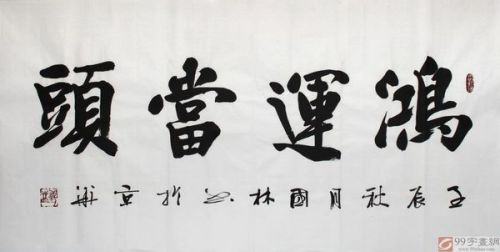 鴻運當頭
壬辰秋月國林書於京華
99字畫網